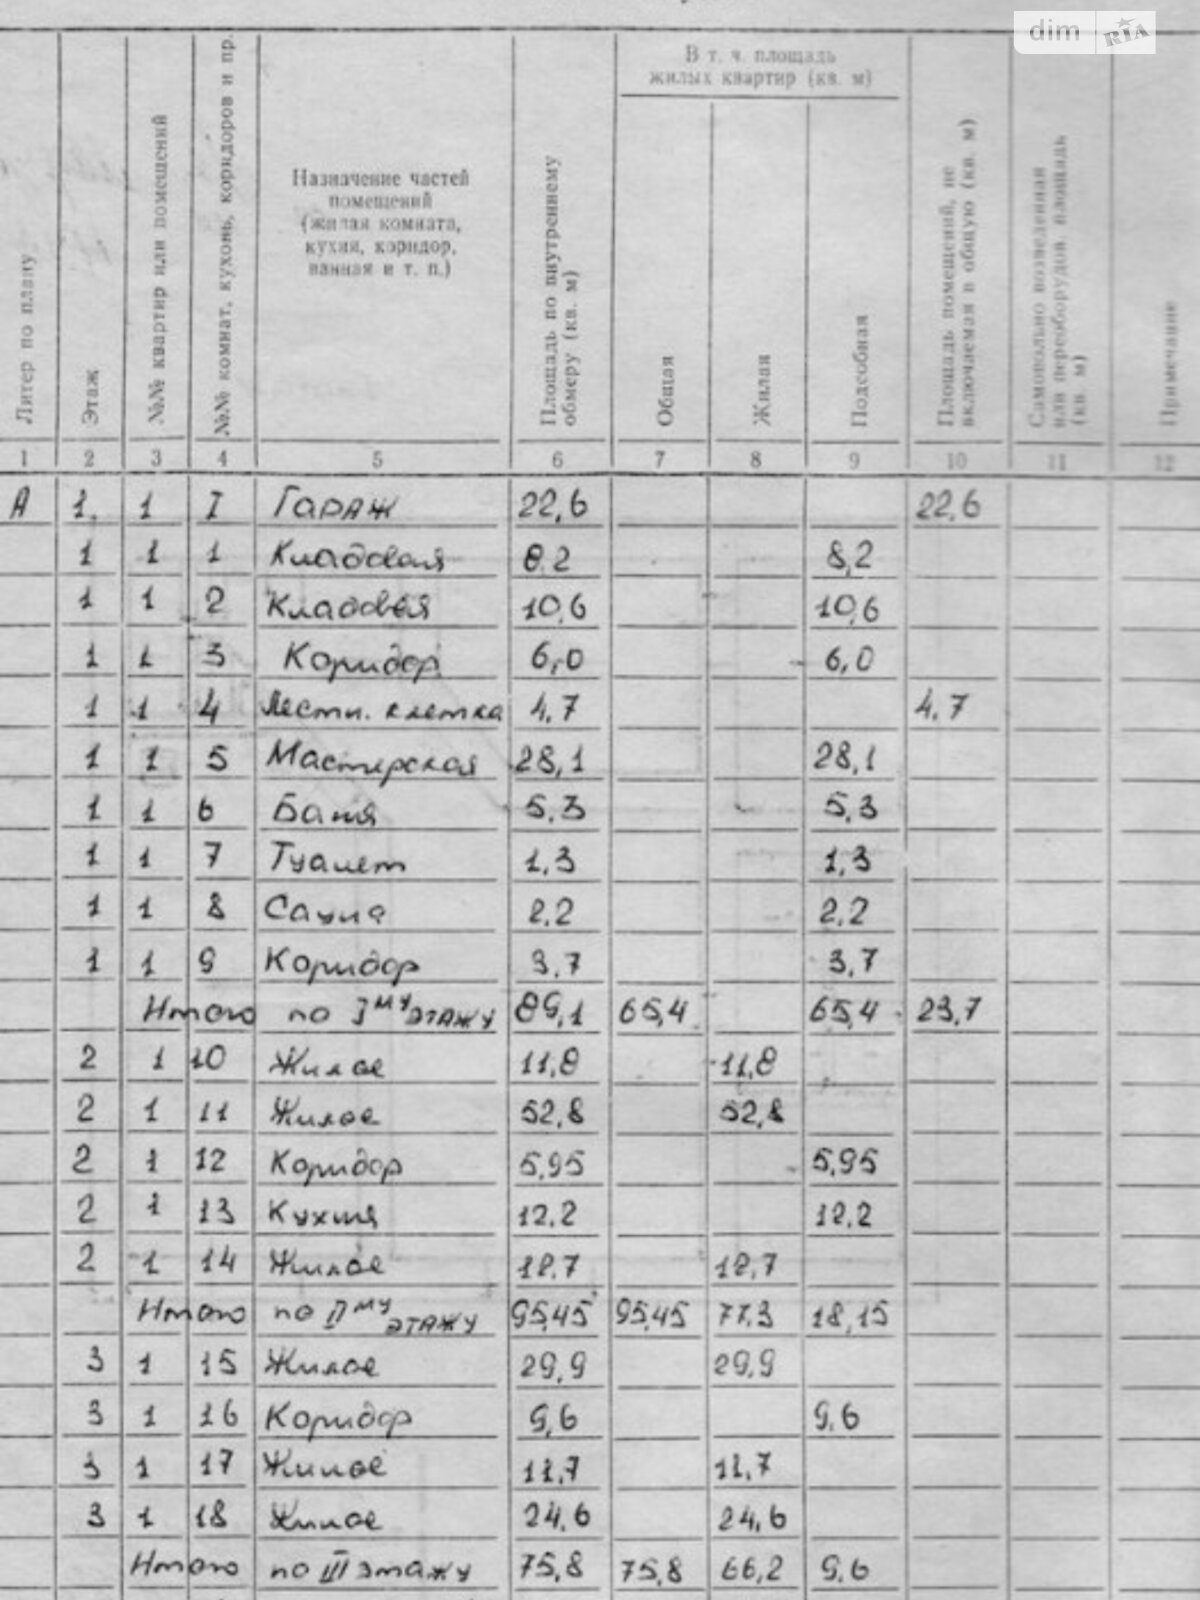 dim RIA
Литер по плану
Этаж
№№ квартир или помещений
№№ комнат, кухонь, коридоров и пр.
Назначение частей
помещений
(жилая комната,
кухня, коридор,
ванная и т. п.)
Площадь по внутреннему
обмеру (кв. м)
В т. ч. площадь
жилых квартир (кв. м)
Общая
Жилая
Подсобная
Площадь помещений, не
включаемая в общую (кв. м)
Самовольно возведенная
или переоборудов. площадь
(кв. м)
Примечание
1 2 3 4 5 6 7 8 9 10 11 12
А 1. 1 I Гараж 22,6 22,6
1 1 1 Кладовая 8.2 8,2
1 1 2 Кладовая 10,6 10,6
1 1 3 Коридор 6,0 6,0
1 1 4 Лестн. клетка 4.7 4.7
1 1 5 Мастерская 28,1 28,1
1 1 6 Баня 5.3 5,3
1 1 7 Туалет 1,3 1,3
1 1 8 Сауна 2.2 2.2
1 1 9 Коридор 3,7 3,7
Итого по Iму этажу 89,1 65,4 65,4 23,7
2 1 10 Жилое 11,8 11,8
2 1 11 Жилое 52,8 52,8
2 1 12 Коридор 5,95 5,95
2 1 13 Кухня 12.2 12.2
2 1 14 Жилое 12.7 12,7
Итого по IIму этажу 95,45 95,45 77.3 18,15
3 1 15 Жилое 29,9 29,9
3 1 16 Коридор 9,6 9.6
3 1 17 Жилое 11,7 11,7
3 1 18 Жилое 24,6 24,6
Итого по III этажу 75,8 75,8 66,2 9,6